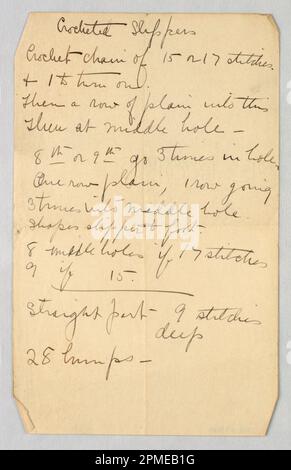 Crocheted Slippers
Crochet chain of 15 or 17 stitches.
& 1 to turn on.
Then a row of plain into this
Then at middle hole —
8th or 9th go 3 times in hole.
One row plain, 1 row going
3 times into middle hole.
Shapes slipper to foot
8 middle holes if 17 stitches
9 if 15.
Straight part 9 stitches
deep
28 bumps —
alamy
Image ID: 2PMEB1G
www.alamy.com